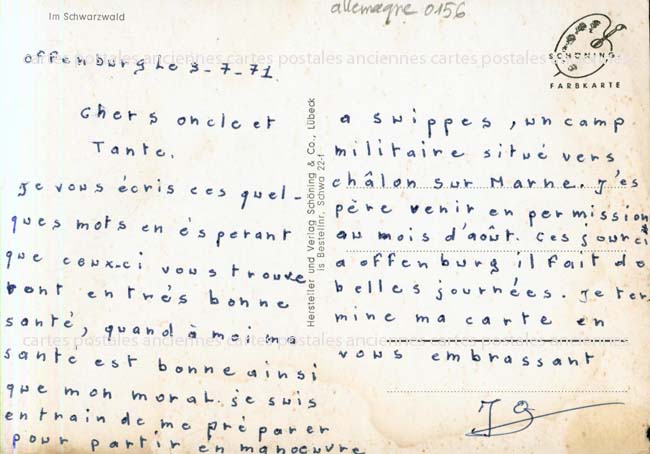 Im Schwarzwald
allemagne 0156
SCHÖNING
FARBKARTE
offenburg Le 3-7-71
chers oncle et
Tante.
Je vous écris ces quel-
ques mots en ésperant
que ceux-ci vous trouve
ront entrés bonne
santé, quand à moi ma
santé est bonne ainsi
que mon moral. je suis
entrain de me préparer
pour partir en manoeuvre
Hersteller und Verlag Schöning & Co., Lübeck
is Bestellnr. Schwa 22-1
a suippes, un camp
militaire situé vers
châlon sur Marne. J'es
père venir en permission
au mois d'août. ces jourci
a offenburg il fait de
belles journées. Je ter
mine ma carte en
vous embrassant
cartes postales anciennes cartes postales anciennes cartes postales anciennes
cartes postales anciennes cartes postales anciennes cartes postales anciennes